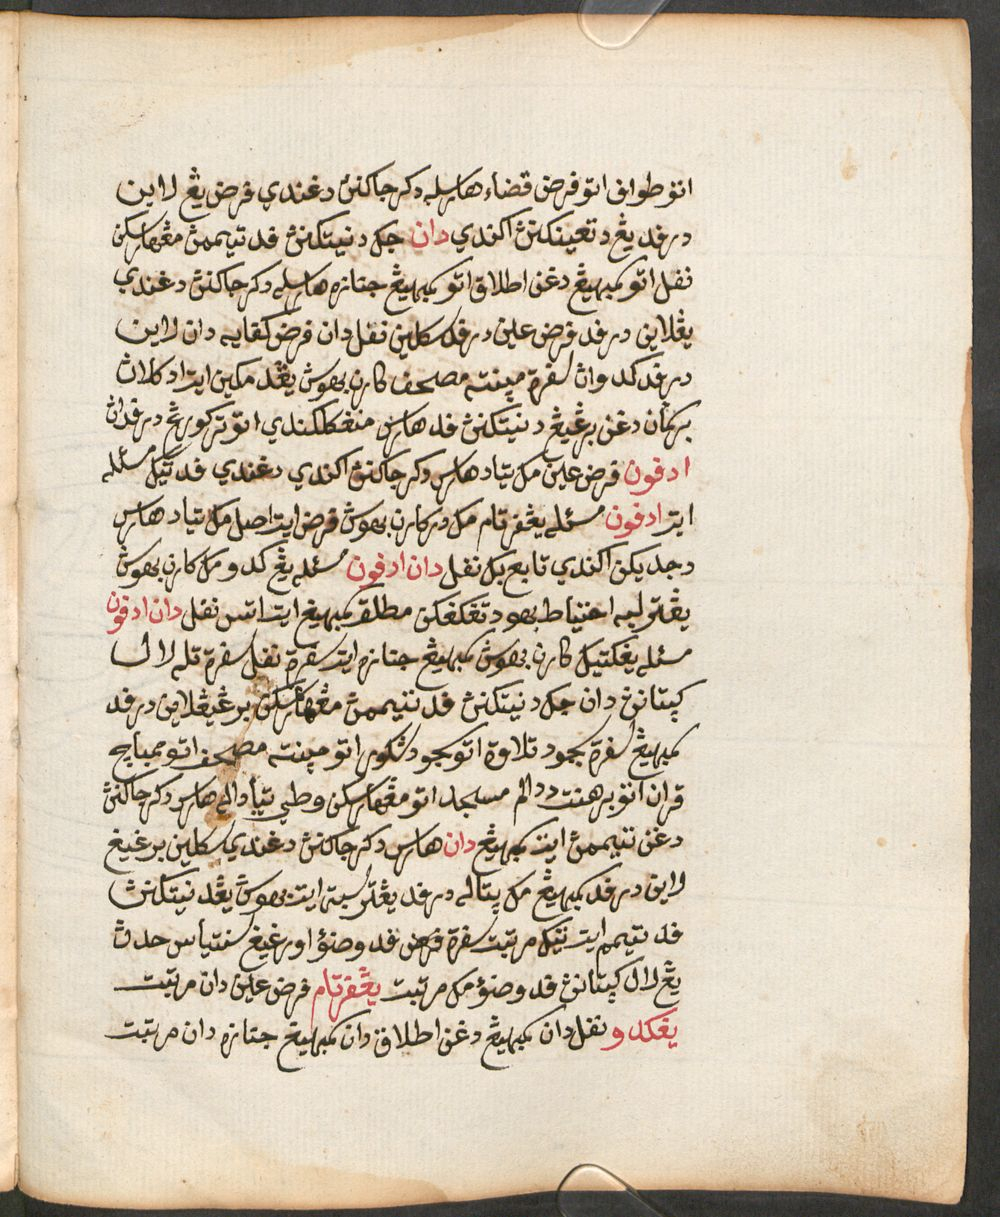 اتو طواف اتو فرض قضاء هارسله دكرجاكنڽ دغندي فرض يڠ لاين
درفد يڠ دتعينكنڽ اكندي دان جك دنيتكنڽ فد تيممڽ مڠهارسكن
نفل اتو سمبهيڠ دغن اطلاق اتو سمبهيڠ جنازه هارسله دكرجاكنڽ دغندي
يڠلاين درفد فرض عين درفد سكلين نفل دان فرض كفايه دان لاين
درفد كدواڽ سفرة مڽنته مصحف كارن بهوسڽ يڠدمكين ايت ادكلاڽ
برڤمان دغن برغيڠ دنيتكنڽ فد هارس منڠݢلكندي اتو تركورڠ درفداڽ
ادفون فرض عين مك تياد هارس دكرجاكنڽ اكندي دغندي فد تيݢ مسئله
ايت ادفون مسئله يڠفرتام مك دركارن بهوسڽ فرض ايت اصل مك تياد هارس
دجديكن اكندي تابع بݢي نفل دان ادفون مسئله يڠ كدو مك كارن بهوسڽ
يڠترلبه احتياط بهو دتڠكفكن مطلق سمبهيڠ ايت اتس نفل دان ادفون
مسئله يڠكتيݢ كارن بهوسڽ سمبهيڠ جنازه ايت سفرة نفل سفرة تله لالو
كڽتائنڽ دان جك دنيتكنڽ فد تيممڽ مڠهارسكن برغيڠلاين درفد
سمبهيڠ سفرة سجود تلاوة اتو سجود شكور اتو مڽنته مصحف اتو ممباچ
قران اتو برهنت ددالم مسجد اتو مڠهارسكن وطي تيادا له هارس دكرجاكنڽ
دغن تيممڽ ايت سمبهيڠ دان هارس دكرجاكنڽ دغندي سكلين برغيڠ
لاين درفد سمبهيڠ مك ڽتاله درفد يڠترسبت ايت بهوسڽ يڠدنيتكنڽ
فد تيمم ايت تيݢ مرتبت سفرة فرض فد وضؤ اورغيڠ سنتياس حدث
يڠ لالو كڽتائنڽ فد وضؤ مك مرتبت يڠفرتام فرض عين دان مرتبت
يڠكدو نفل دان سمبهيڠ دغن اطلاق دان سمبهيڠ جنازه دان مرتبت